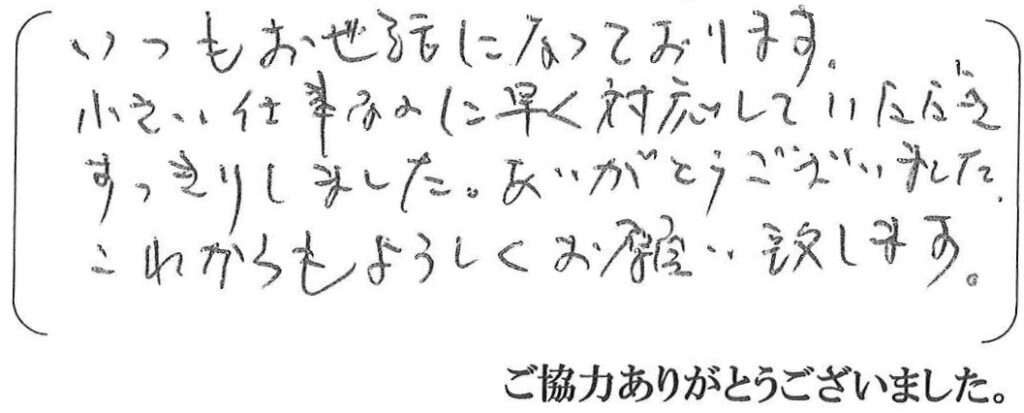 いつもお世話になっております。
小さい仕事なのに早く対応していただき
すっきりしました。ありがとうございました。
これからもよろしくお願い致します。
ご協力ありがとうございました。